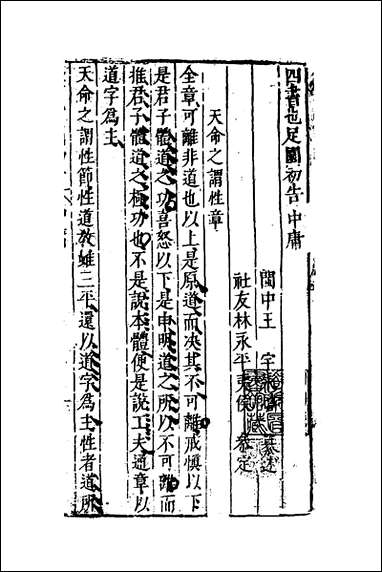 四書也足園初告中庸
閩中王宇 泰述
社友林永平 夷侯 叅定
天命之謂性章
全章可離非道也以上是原道而决其不可離戒慎以下
是君子體道之功喜怒以下是申明道之所以不可離而
推君子體道之極功也不是說本體便是說工夫通章以
道字為主
天命之謂性節性道教雖三平還以道字為主性者道所